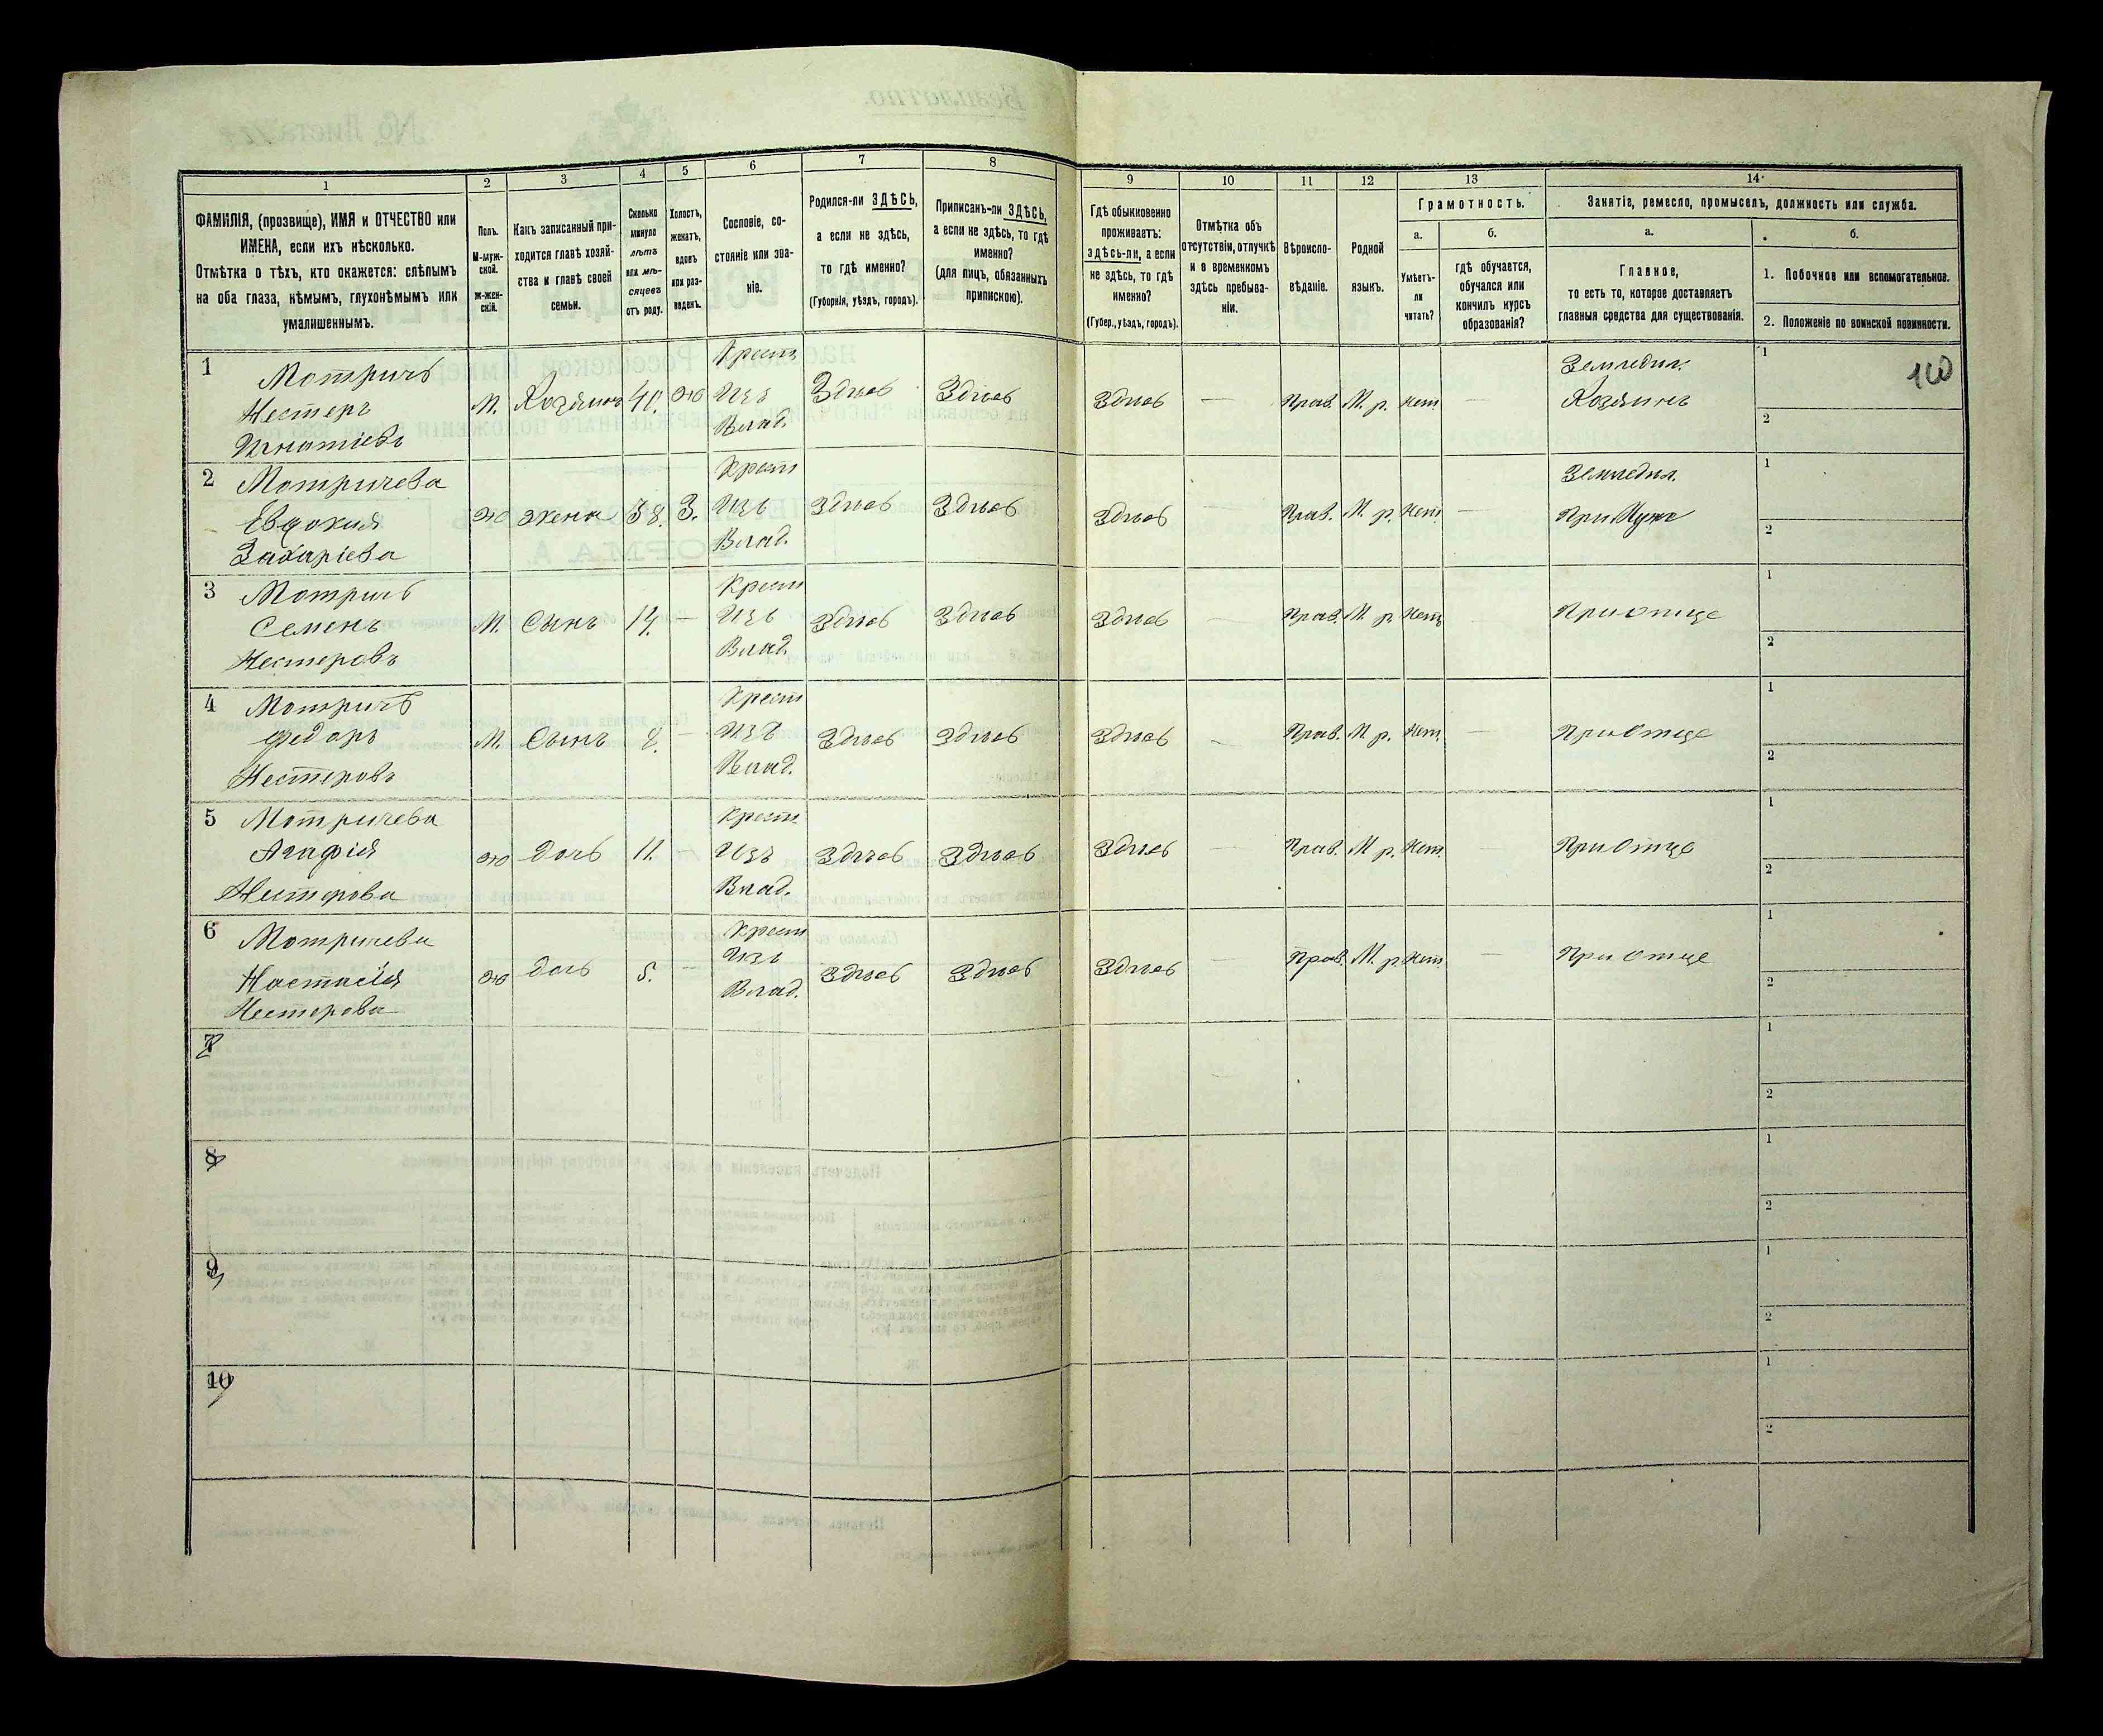 1 2 3 4 5 6 7 8 9 10 11 12 13 14
ФАМИЛІЯ, (прозвище), ИМЯ и ОТЧЕСТВО или
ИМЕНА, если ихъ нѣсколько.
Отмѣтка о тѣхъ, кто окажется: слѣпымъ
на оба глаза, нѣмымъ, глухонѣмымъ или
умалишеннымъ.
Полъ.
М-муж-
ской.
Ж-жен-
скій.
Какъ записанный при-
ходится главѣ хозяй-
ства и главѣ своей
семьи.
Сколько
минуло
лѣтъ
или мѣ-
сяцевъ
отъ роду.
Холостъ,
женатъ,
вдовъ
или раз-
веденъ.
Сословіе, со-
стояніе или зва-
ніе.
Родился-ли ЗДѢСЬ,
а если не здѣсь,
то гдѣ именно?
(Губернія, уѣздъ, городъ).
Приписанъ-ли ЗДѢСЬ,
а если не здѣсь, то гдѣ
именно?
(для лицъ, обязанныхъ
припискою).
Гдѣ обыкновенно
проживаетъ:
здѣсь-ли, а если
не здѣсь, то гдѣ
именно?
(Губер., уѣздъ, городъ).
Отмѣтка объ
отсутствіи, отлучкѣ
и о временномъ
здѣсь пребыва-
ніи.
Вѣроиспо-
вѣданіе.
Родной
языкъ.
Грамотность.
а.
Умѣетъ-
ли
читать?
б.
гдѣ обучается,
обучался или
кончилъ курсъ
образованія?
Занятіе, ремесло, промыселъ, должность или служба.
а.
Главное,
то есть то, которое доставляетъ
главныя средства для существованія.
б.
1. Побочное или вспомогательное.
2. Положеніе по воинской повинности.
1 Мотричъ Крест. Земледѣл. 1
Нестеръ М. Хозяинъ Изъ Здѣсь Здѣсь Здѣсь — Прав. М. р. Нет. — Хозяинъ
Игнатіевъ Влад. 2
2 Мотричева Крест Земледѣл. 1
Евдокия Ж жена 38. З. Изъ Здѣсь Здѣсь Здѣсь — Прав. М. р. Нет. — При Мужѣ
Захаріева Влад. 2
3 Мотричъ Крест 1
Семенъ М. Сынъ 14. — Изъ Здѣсь Здѣсь Здѣсь — Прав. М. р. Нет. При отце
Нестеровъ Влад. 2
4 Мотричъ Крест 1
Федоръ М. Сынъ — Изъ Здѣсь Здѣсь Здѣсь — Прав. М. р. Нет. — При Отце
Нестеровъ Влад. 2
5 Мотричева Крест 1
Агафія Ж дочь 11. — Изъ Здѣсь Здѣсь Здѣсь — Прав. М. р. Нет. — При Отце
Нестерова Влад. 2
6 Мотричева Крест 1
Настасія Ж дочь 5. — Изъ Здѣсь Здѣсь Здѣсь — Прав. М. р. Нет. — При Отце
Нестерова Влад. 2
7 1
2
8 1
2
9 1
2
10 1
2